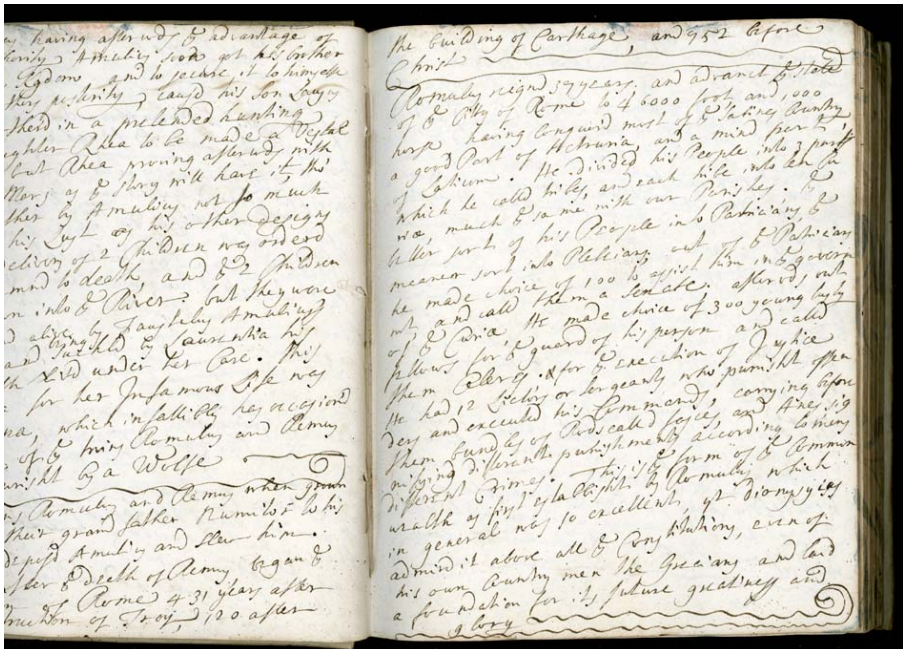 having afterwds & advantage of
Amulius soon got his brother
and to secure it to himself
posterity, causd his son
in a pretended hunting
Rhea to be made a Vestal
but Rhea proving afterwds with
Mars as & story will have it, this
by Amulius not so much
his Lust as his other designs
of 2 Children was orderd
to death, and & 2 Children
into & River. but they were
alive by Faustulus Amulius's
and suckld by Laurentia his
under her Care. This
for her Infamous Life was
which infallibly has occasiond
of & twins Romulus and Remus
by a Wolfe
Romulus and Remus when grown
their grand father Numitor to his
Amulius and slew him.
& death of Remus began &
of Rome 431 years after
of Troy, 120 after
the building of Carthage, and 952 before
Christ
Romulus reignd 37 years, and advanct & state
of & City of Rome to 46000 foot and 1000
horse having conquerd most of & Sabines Country
a good Part of Hetruria, and a mind part
of Latium. He divided his People into 3 parts
which he calld tribes, and each tribe into ten Cu
riæ much & same with our Parishes. &
better sort of his People into Patricians, &
meaner sort into Plebians, out of & Patricians
he made choice of 100 to assist him in & govern
mt and calld them a Senate. afterwds out
of & Curiæ He made choice of 300 young lusty
fellows for & guard of his person and calld
them Celeres. & for & execution of Justice
He had 12 Lictors or sergeants who punisht offen
ders and executed his Commands, carrying before
them bundles of Rods calld fasces, and Axes sig
nifying different punishments according to
different Crimes. This is & form of & Common
wealth as first establisht by Romulus which
in general was so excellent, yt Dionysius
admird it above all & Constitutions, even of
his own Country men the Grecians and laid
a foundation for its future greatness and
glory